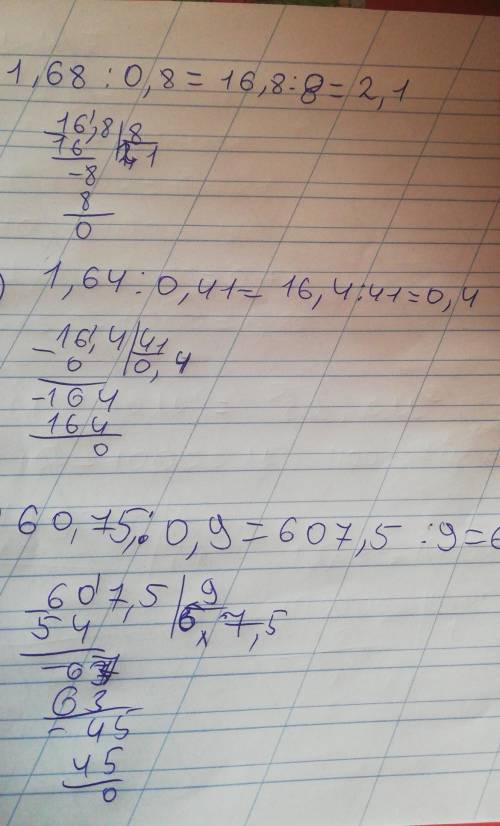 1,68 : 0,8 = 16,8 : 8 = 2,1
16,8 | 8
16 2,1
-8
8
0
) 1,64 : 0,41 = 16,4 : 41 = 0,4
- 16,4 | 41
0 0,4
- 164
164
0
60,75 : 0,9 = 607,5 : 9 = 6
- 607,5 | 9
54 6 7,5
- 63
-45
45
0